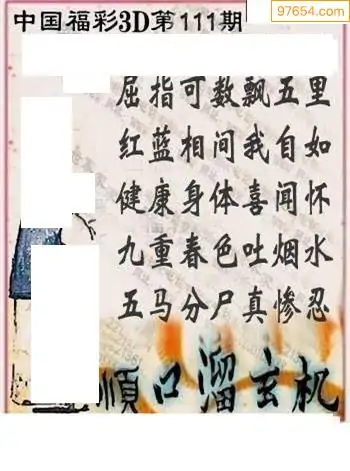 97654.com
中国福彩3D第111期
屈指可数飘五里
红蓝相间我自如
健康身体喜闻怀
九重春色吐烟水
五马分尸真惨忍
顺口溜玄机